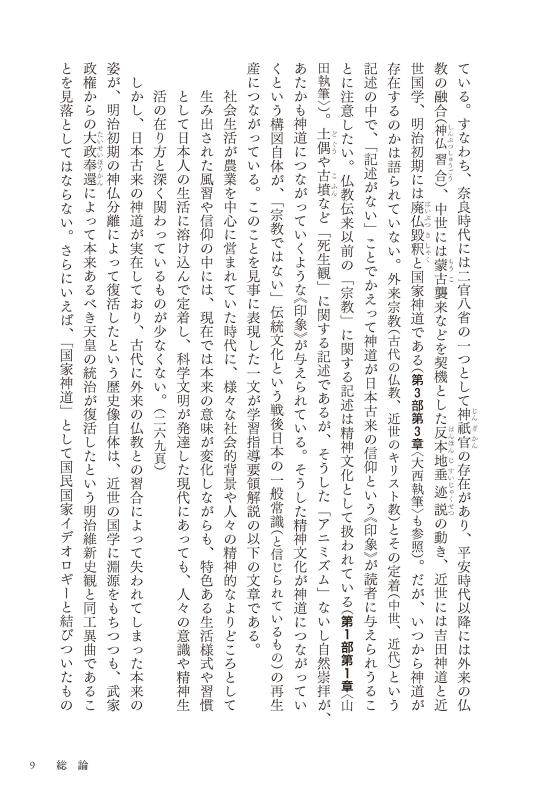 ている。すなわち、奈良時代には二官八省の一つとして神祇官の存在があり、平安時代以降には外来の仏
教の融合（神仏習合）、中世には蒙古襲来などを契機とした反本地垂迹説の動き、近世には吉田神道と近
世国学、明治初期には廃仏毀釈と国家神道である（第3部第3章〈大西執筆〉も参照）。だが、いつから神道が
存在するのかは語られていない。外来宗教（古代の仏教、近世のキリスト教）とその定着（中世、近代）という
記述の中で、「記述がない」ことでかえって神道が日本古来の信仰という《印象》が読者に与えられうるこ
とに注意したい。仏教伝来以前の「宗教」に関する記述は精神文化として扱われている（第1部第1章〈山
田執筆〉）。土偶や古墳など「死生観」に関する記述であるが、そうした「アニミズム」ないし自然崇拝が、
あたかも神道につながっていくような《印象》が与えられている。そうした精神文化が神道につながってい
くという構図自体が、「宗教ではない」伝統文化という戦後日本の一般常識（と信じられているもの）の再生
産につながっている。このことを見事に表現した一文が学習指導要領解説の以下の文章である。
社会生活が農業を中心に営まれていた時代に、様々な社会的背景や人々の精神的なよりどころとして
生み出された風習や信仰の中には、現在では本来の意味が変化しながらも、特色ある生活様式や習慣
として日本人の生活に溶け込んで定着し、科学文明が発達した現代にあっても、人々の意識や精神生
活の在り方と深く関わっているものが少なくない。（二六九頁）
しかし、日本古来の神道が実在しており、古代に外来の仏教との習合によって失われてしまった本来の
姿が、明治初期の神仏分離によって復活したという歴史像自体は、近世の国学に淵源をもちつつも、武家
政権からの大政奉還によって本来あるべき天皇の統治が復活したという明治維新史観と同工異曲であるこ
とを見落としてはならない。さらにいえば、「国家神道」として国民国家イデオロギーと結びついたもの
9 総論